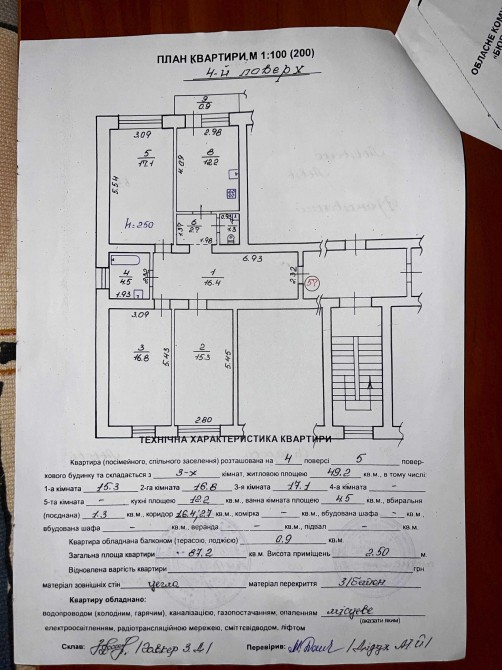 ОБЛАСНЕ КОМ
"БЮР
ПЛАН КВАРТИРИ, М 1:100 (200)
4-й поверх
9
0.9
3.09
2.98
5
17.1
8
12.2
5.54
4.09
h=2.50
6
2.7
1.37
1.98
7
1.3
6.93
4
4.5
2.32
1.93
1
16.4
2.32
57
3.09
3
16.8
5.43
2
15.3
5.45
2.80
ТЕХНІЧНА ХАРАКТЕРИСТИКА КВАРТИРИ
Квартира (посімейного, спільного заселення) розташована на 4 поверсі 5 повер-
хового будинку та складається з 3-х кімнат, житловою площею 49.2 кв.м., в тому числі
1-а кімната 15.3 2-га кімната 16.8 3-я кімната 17.1 4-а кімната –
5-та кімната – кухні площею 12.2 кв.м., ванна кімната 4.5 кв.м., вбиральня
(поєднана) 1.3 кв.м., коридор 16.4, 2.7 кв.м., комірка – кв.м., вбудована шафа – кв.м.,
вбудована шафа – кв.м., веранда – кв.м., підвал – кв.м.
Квартира обладнана балконом (терасою, лоджією) 0.9 кв.м.
Загальна площа квартири 87.2 кв.м. Висота приміщень 2.50 м.
Відновлена вартість квартири грн
матеріал зовнішніх стін цегла матеріал перекриття З/бетон
Квартиру обладнано:
водопроводом (холодним, гарячим), каналізацією, газопостачанням, опаленням місцеве
(вказати яким)
електроосвітленням, радіотрансляційною мережею, сміттєсвідводом, ліфтом
Склав: Перевірив: